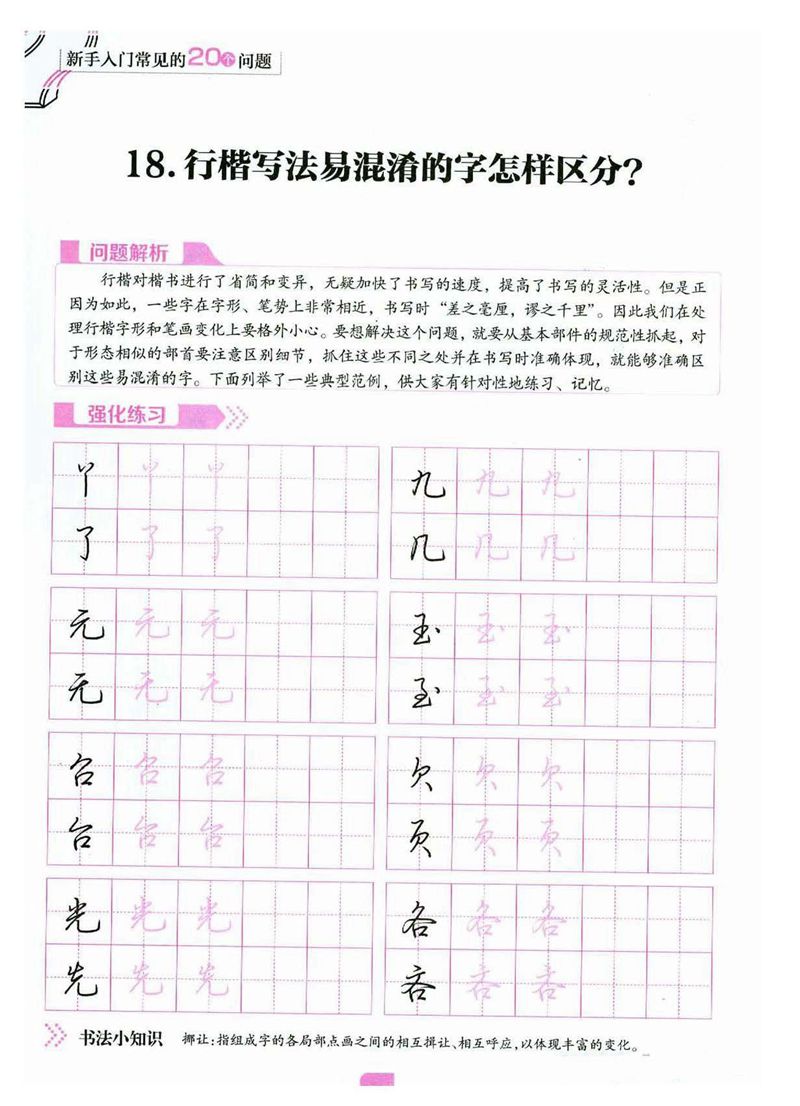 新手入门常见的20个问题
18.行楷写法易混淆的字怎样区分?
问题解析
行楷对楷书进行了省简和变异，无疑加快了书写的速度，提高了书写的灵活性。但是正
因为如此，一些字在字形、笔势上非常相近，书写时“差之毫厘，谬之千里”。因此我们在处
理行楷字形和笔画变化上要格外小心。要想解决这个问题，就要从基本部件的规范性抓起，对
于形态相似的部首要注意区别细节，抓住这些不同之处并在书写时准确体现，就能够准确区
别这些易混淆的字。下面列举了一些典型范例，供大家有针对性地练习、记忆。
强化练习
丫丫丫
九九九
了了了
几几几
元元元
玉玉玉
无无无
至至至
召召召
欠欠欠
台台台
页页页
光光光
各各各
先先先
吝吝吝
书法小知识 挪让:指组成字的各局部点画之间的相互揖让、相互呼应,以体现丰富的变化。